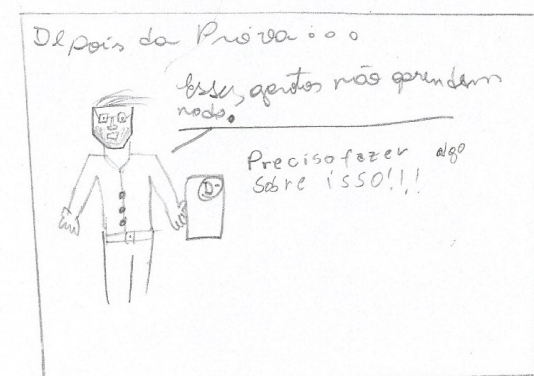 Depois da Prova...
Esses garotos não aprendem
nada.
Preciso fazer algo
sobre isso!!!
D-